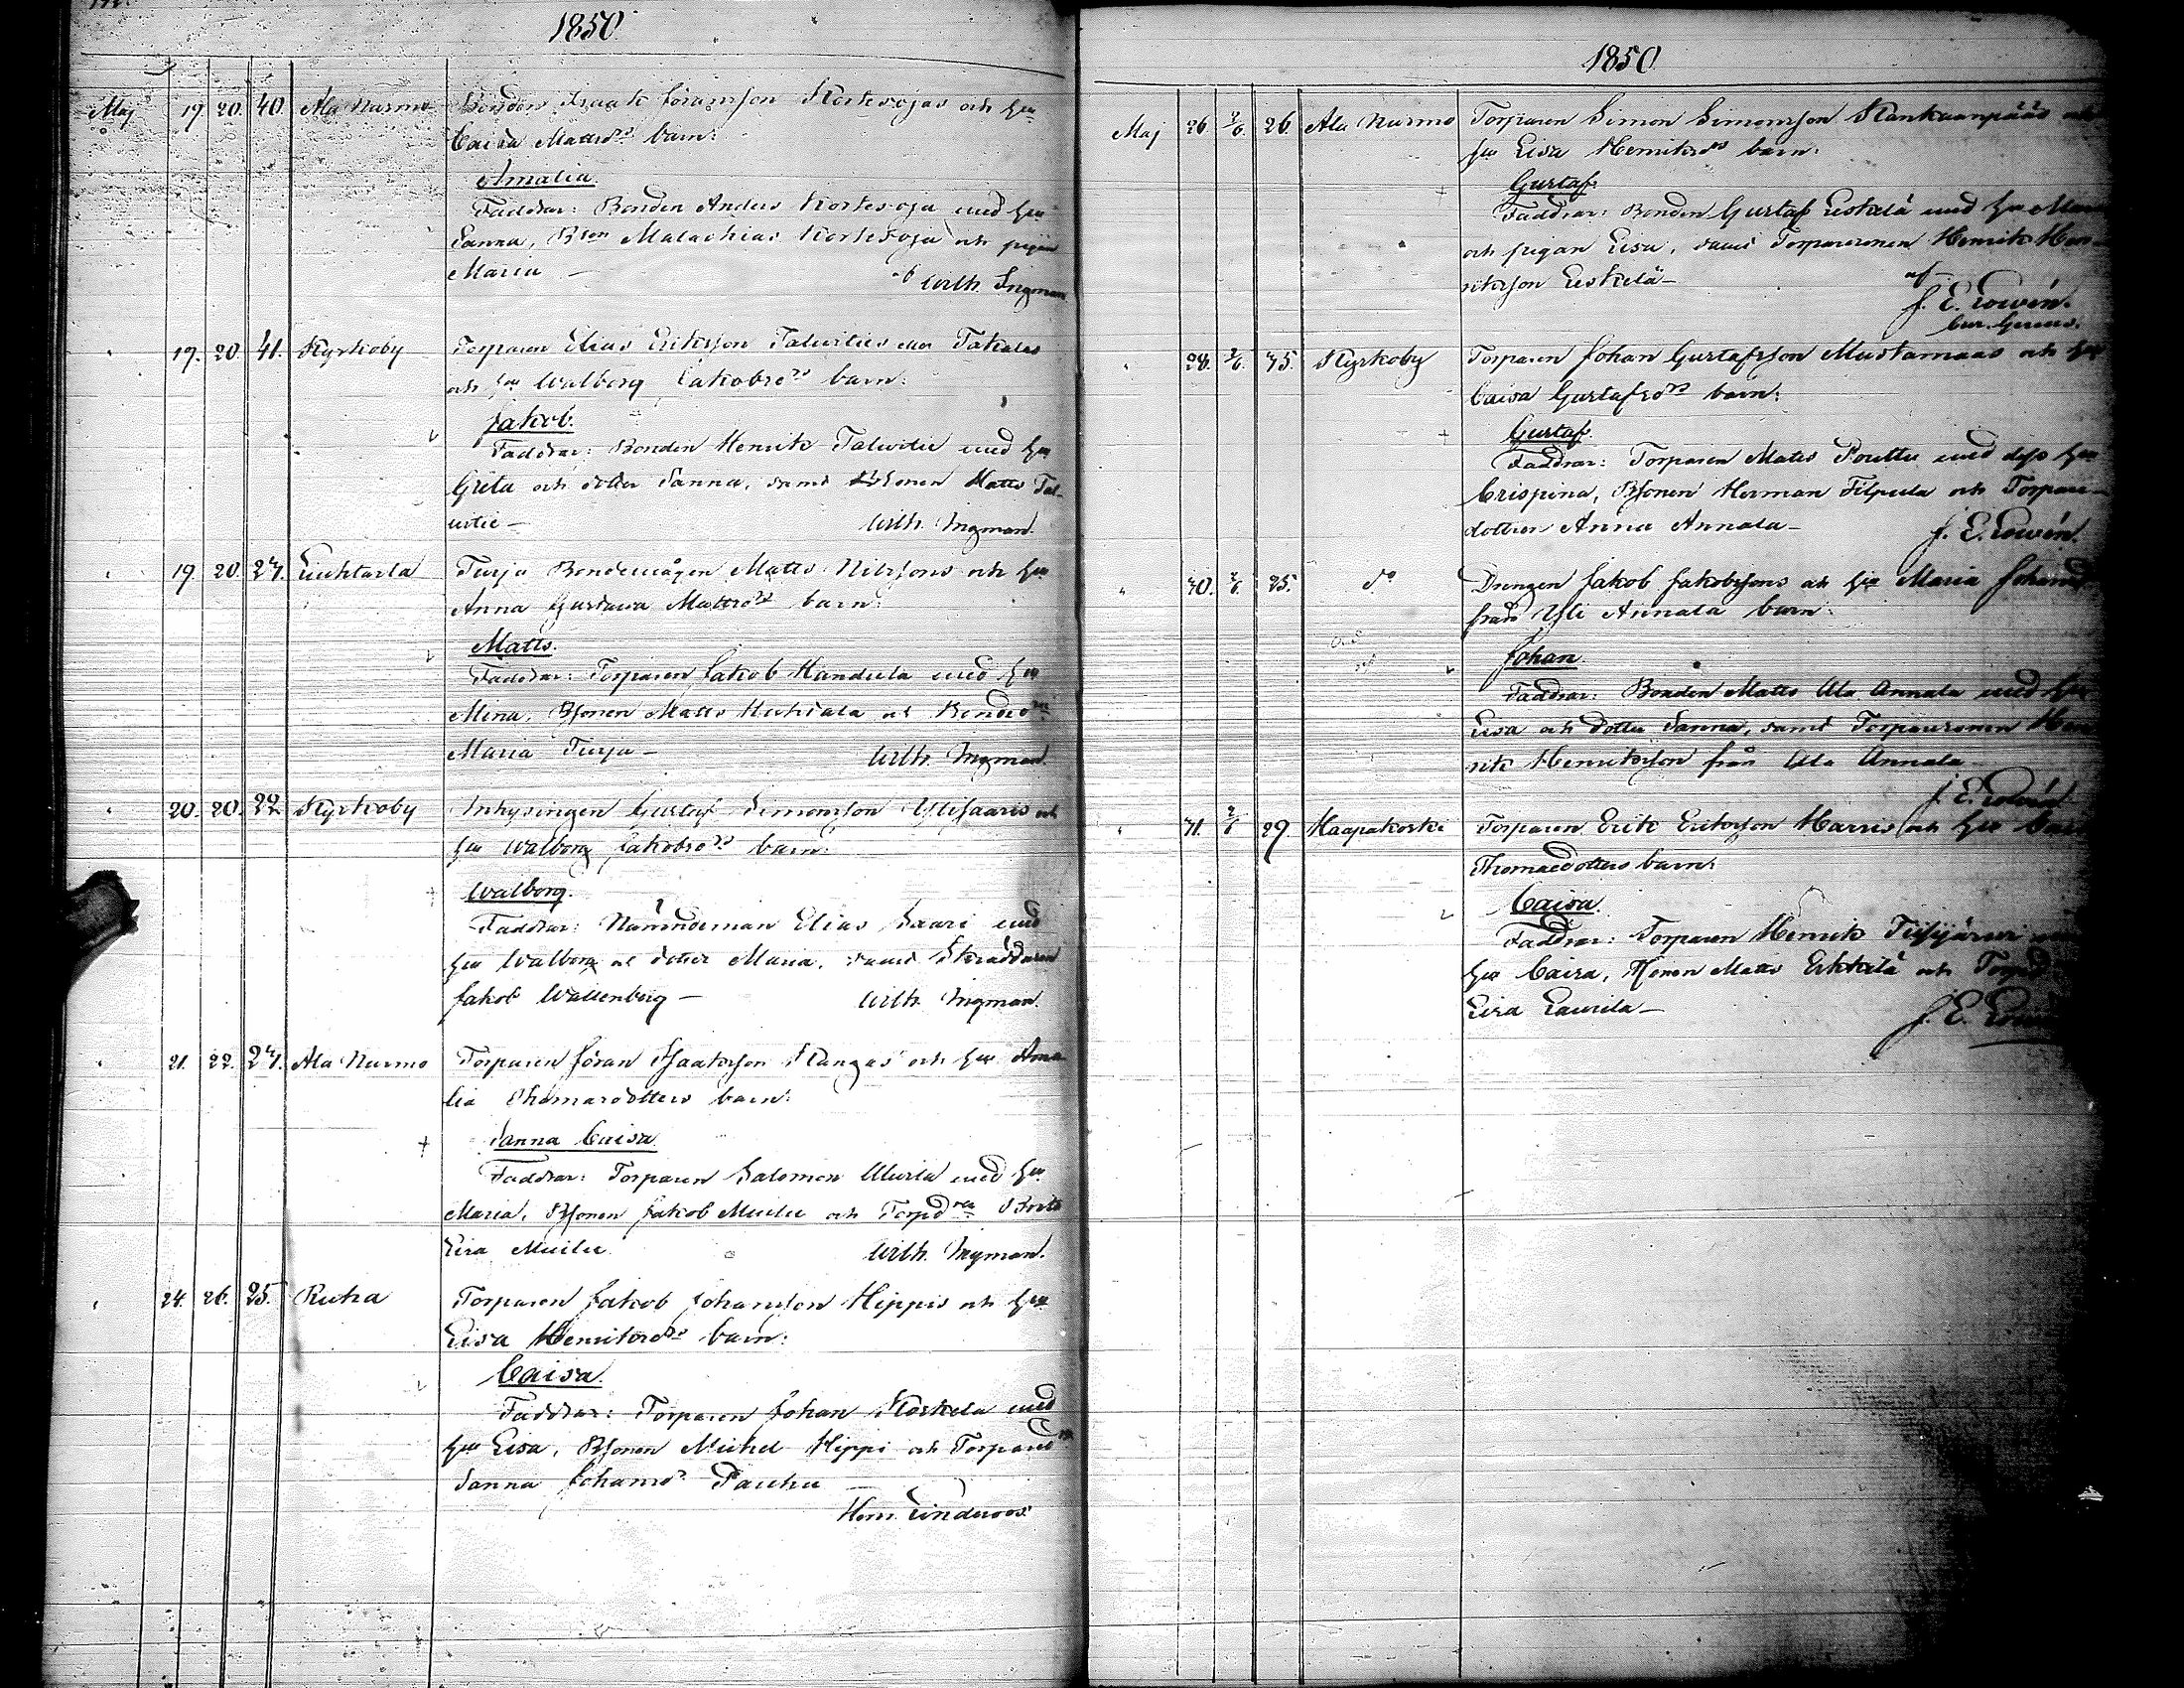 1850
Maj 19. 20. 40. Ala Nurmo Bonden Isaak Göransson Kortesojas och hu
Caisa Mattsdrs barn:
Amalia.
Faddrar: Bonden Anders Kortesoja med hu
Sanna, Bson Malachias Kortesoja och pigan
Maria – af Wilh. Ingman
" 19. 20. 41. Kyrkoby Torparen Elias Eriksson Talvities
och hu Walborg Jakobsdrs barn:
Jakob.
Faddrar: Bonden Henrik Talvitie med hu
Greta och dotter Sanna, samt Bsonen Matts Tal-
vitie – Wilh. Ingman.
" 19. 20. 24. Liuhtarla Turja Bondemågen Matts Nilssons och hu
Anna Gustava Mattsdrs barn:
Matts.
Faddrar: Torparen Jakob Mandula med hu
Mina, Bsonen Matts Huhtala och Bondedrn
Maria Turja – Wilh. Ingman.
" 20. 20. 22. Kyrkoby Inhysingen Gustaf Simonsson Ylisaaris och
hu Walborg Jakobsdrs barn:
Walborg.
Faddrar: Nämndeman Elias Saari med
hu Walborg och dotter Maria, samt Skräddaren
Jakob Wallenberg – Wilh. Ingman.
" 21. 22. 24. Ala Nurmo Torparen Göran Isaaksson Kangas och hu Ama-
lia Thomasdotters barn:
Sanna Caisa.
Faddrar: Torparen Salomon with med hu
Maria, Bsonen Jakob Muilu och Torpdrn Brita
Lisa Muilu. Wilh. Ingman.
" 24. 26. 25. Ruha Torparen Jakob Johansson Hippis och hu
Lisa Henriksdrs barn:
Caisa.
Faddrar: Torparen Johan Koskela med
hu Lisa, Bsonen Michel Hippi och Torparedrn
Sanna Johansdr Pauha
Herm. Linderoos.
1850
Maj 26. 2/6. 26. Ala Nurmo Torparen Simon Simonsson Kankaanpääs och
hu Lisa Henriksdrs barn:
Gustaf.
Faddrar: Bonden Gustaf Eskelä med hu
och pigan Lisa, samt Torparesonen Henrik Hen-
riksson Eskelä – af
J. E. Lovén.
" 28. 2/6. 35. Kyrkoby Torparen Johan Gustafsson Mustamaas och hu
Caisa Gustafsdrs barn:
Gustaf.
Faddrar: Torparen Matts Pouttu med dess hu
Crispina, Bsonen Herman Filpula och Torpare-
dottren Anna Annala – J. E. Lovén.
" 30. 2/6. 25. do Drengen Jakob Jakobssons och hu Maria
från Yli Annala barn:
Johan.
Faddrar: Bonden Matts Ala Annala med hu
Lisa och dotter Sanna, samt Torparesonen Hen-
rik Henriksson från Ala Annala –
J. E. Lovén
" 31. 2/6 29. Haapakoski Torparen Erik Eriksson Harris och hu
Thomaedotters barn:
Caisa.
Faddrar: Torparen Henrik
hu Caisa, Bsonen Matts Erkkilä och
Lisa Laurila – J. E.